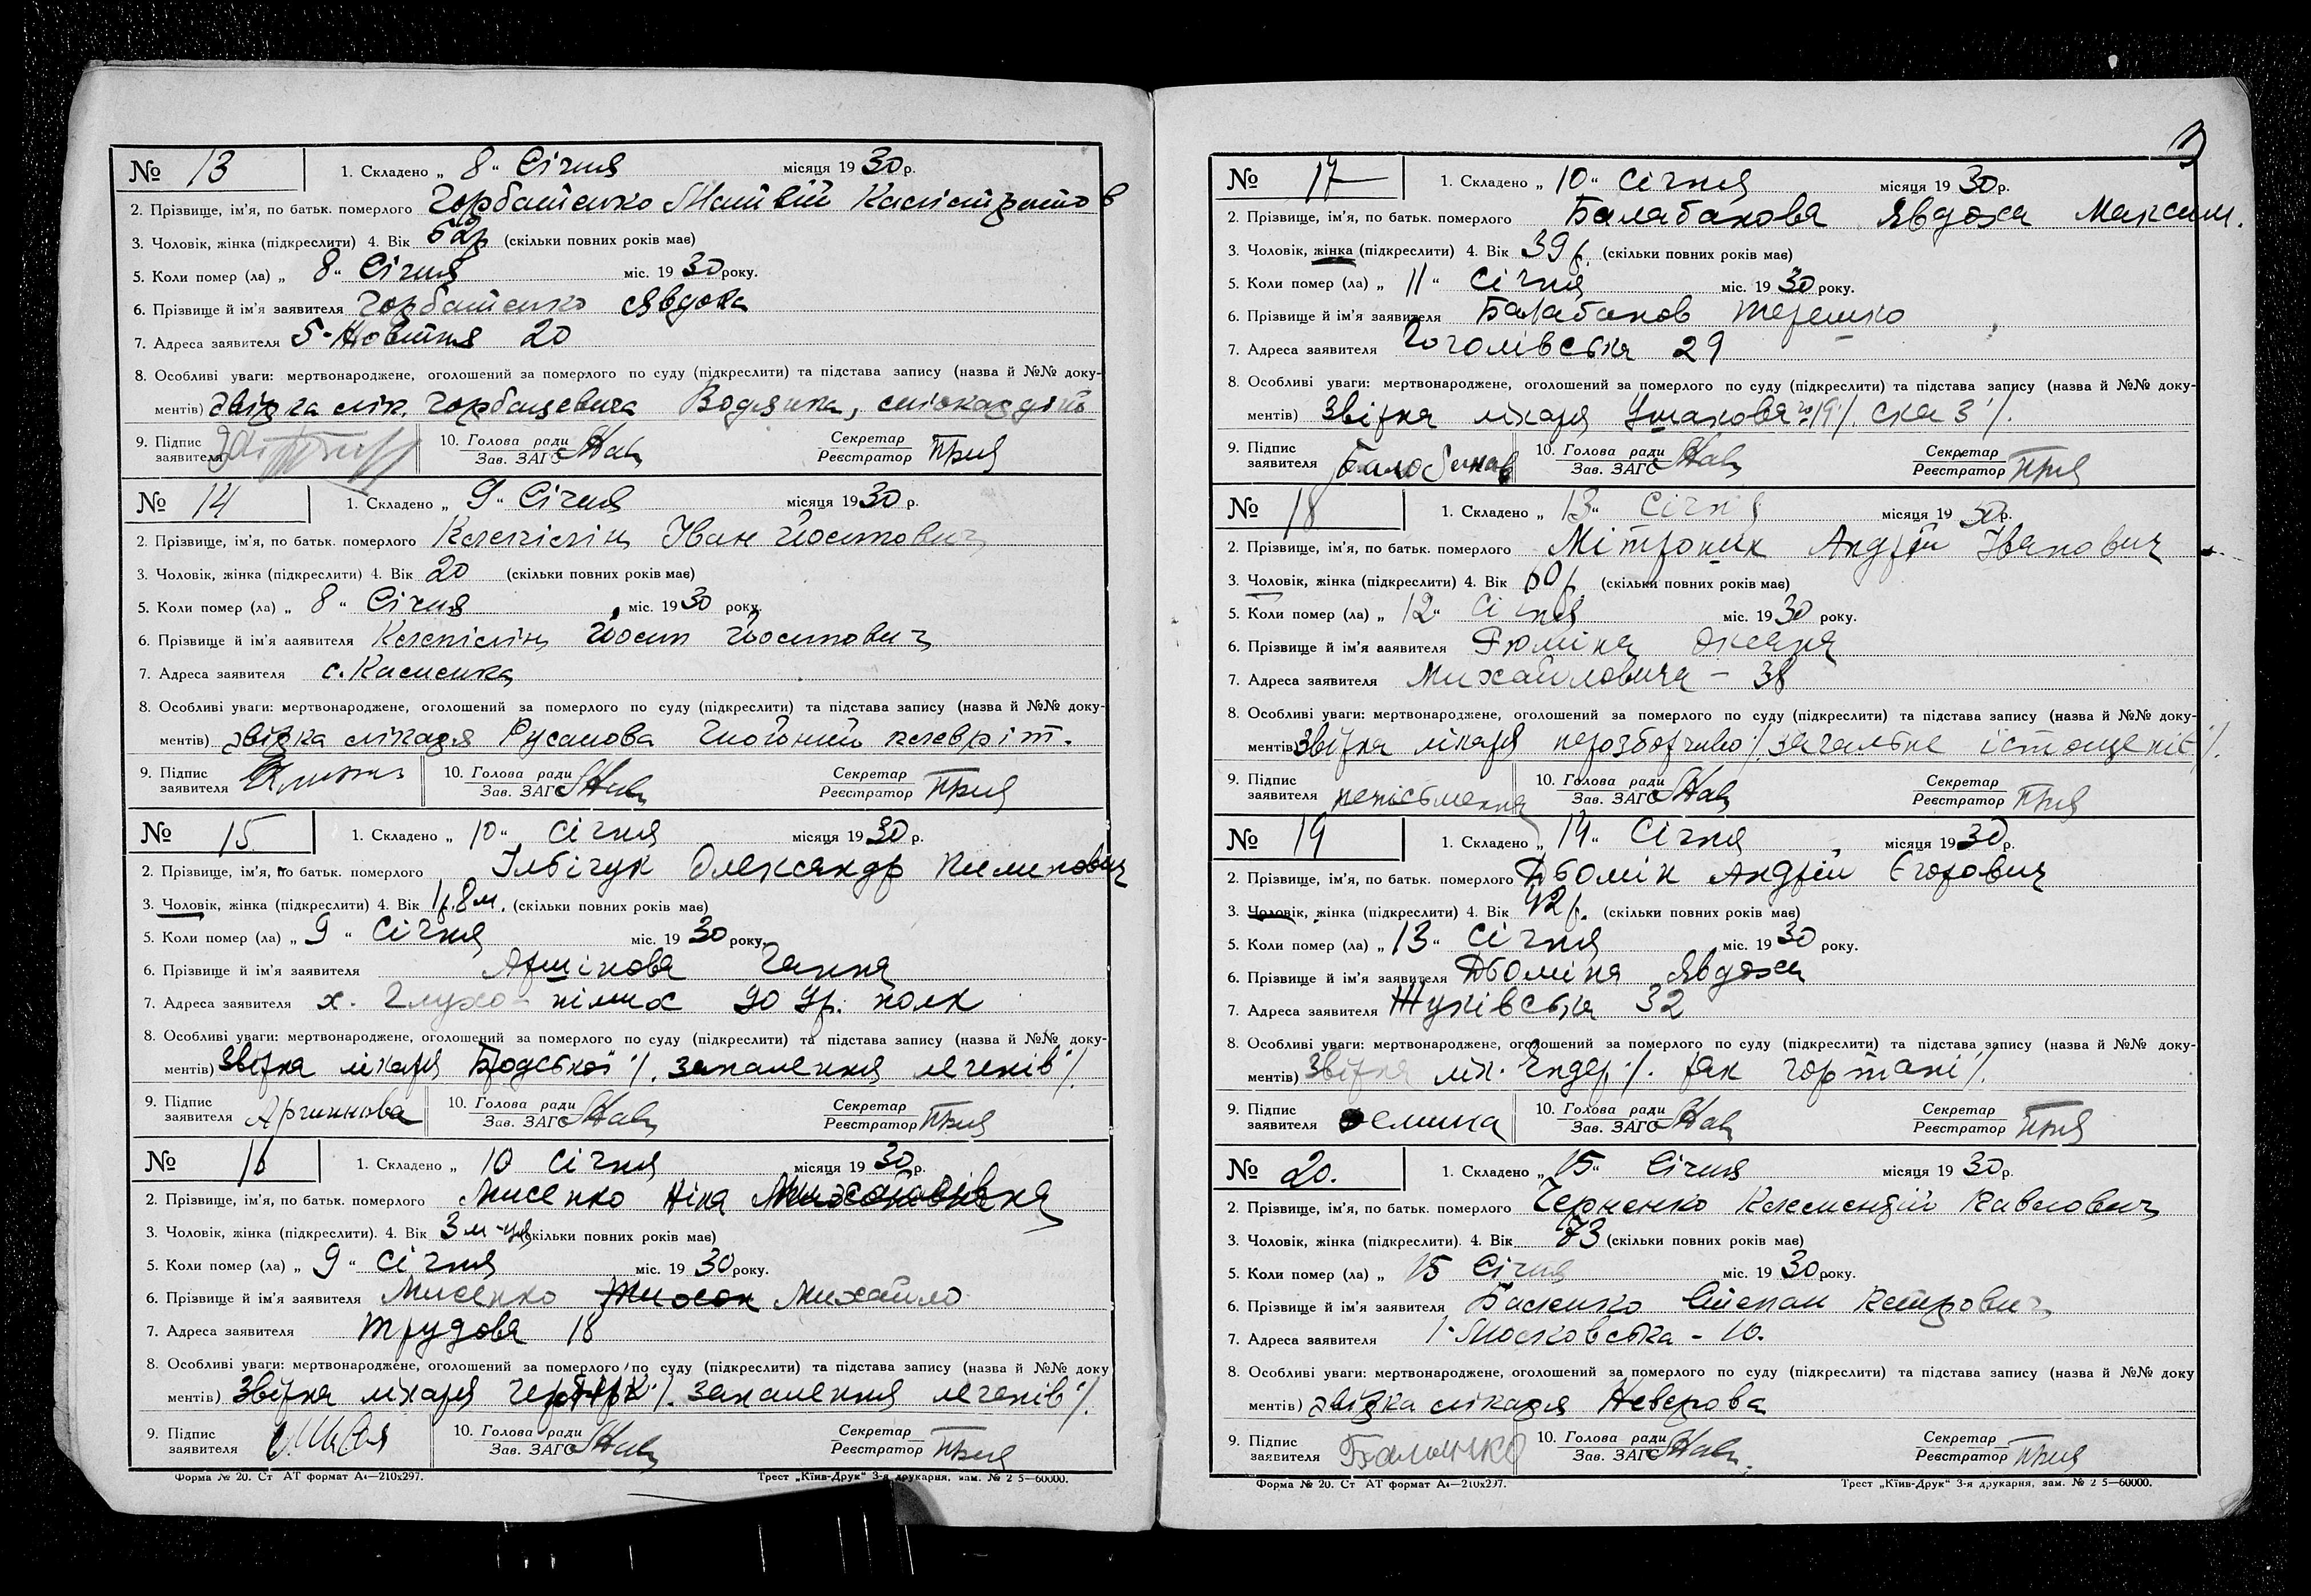 № 13 1. Складено „ 8 “ Січня місяця 1930 р.
2. Прізвище, ім'я, по батьк. померлого Горбатенко Матвій Калістратов
3. Чоловік, жінка (підкреслити) 4. Вік 62р (скільки повних років має)
5. Коли помер (ла) „ 8 “ Січня міс. 1930 року.
6. Прізвище й ім'я заявителя Горбатенко Явдоха
7. Адреса заявителя 5-Новітня 20
8. Особливі уваги: мертвонароджене, оголошений за померлого по суду (підкреслити) та підстава запису (назва й №№ доку-
ментів) Звідка лік. Горбацевича Водянка, міокардит
9. Підпис заявителя 10. Голова ради Зав. ЗАГС Секретар Реєстратор
№ 14 1. Складено „ 9 “ Січня місяця 1930 р.
2. Прізвище, ім'я, по батьк. померлого Іван Йосипович
3. Чоловік, жінка (підкреслити) 4. Вік 20 (скільки повних років має)
5. Коли помер (ла) „ 8 “ Січня міс. 1930 року.
6. Прізвище й ім'я ааявителя Йосип Йосипович
7. Адреса заявителя с.
8. Особливі уваги: мертвонароджене, оголошений за померлого по суду (підкреслити) та підстава запису (назва й №№ доку-
ментів) Звідка лікаря Русанова Гнойний плеврит.
9. Підпис заявителя 10. Голова ради Зав. ЗАГС Секретар Реєстратор
№ 15 1. Складено „ 10 “ Січня місяця 1930 р.
2. Прізвище, ім'я, по батьк. померлого Ільбічук Олександр Пилипович
3. Чоловік, жінка (підкреслити) 4. Вік 1р. 8м. (скільки повних років має)
5. Коли помер (ла) „ 9 “ Січня міс. 1930 року.
6. Прізвище й ім'я заявителя Аршінова Ганна
7. Адреса заявителя х. Глухо-німих 90 Ур. полк
8. Особливі уваги: мертвонароджене, оголошений за померлого по суду (підкреслити) та підстава запису (назва й №№ доку-
ментів) Звідка лікаря Бродської ·/. запалення легенів ·/.
9. Підпис заявителя Аршинова 10. Голова ради Зав. ЗАГС Секретар Реєстратор
№ 16 1. Складено „ 10 Січня місяця 1930 р.
2. Прізвище, ім'я, по батьк. померлого Лисенко Ніна Михайлівна
3. Чоловік, жінка (підкреслити). 4. Вік 3 м-ця (скільки повних років має)
5. Коли помер (ла) „ 9 “ Січня міс. 1930 року.
6. Прізвище й ім'я заявителя Лисенко Михайло
7. Адреса заявителя Трудова 18
8. Особливі уваги: мертвонароджене, оголошений за померлого по суду (підкреслити) та підстава запису (назва й №№ доку
ментів) Звідка лікаря ·/. запалення легенів ·/.
9. Підпис заявителя 10. Голова ради Зав. ЗАГС Секретар Реєстратор
Форма № 20. Ст АТ формат А4—210х297. Трест „Київ-Друк“ 3-я друкарня, зам. № 2 5—60000.
№ 17 1. Складено „ 10 “ Січня місяця 1930 р.
2. Прізвище, ім'я, по батьк. померлого Балабанова Явдоха Максим.
3. Чоловік, жінка (підкреслити) 4. Вік 39 р. (скільки повних років має)
5. Коли помер (ла) „ 11 “ Січня міс. 1930 року.
6. Прізвище й ім'я заявителя Балабанов Терешко
7. Адреса заявителя Гоголівська 29
8. Особливі уваги: мертвонароджене, оголошений за померлого по суду (підкреслити) та підстава запису (назва й №№ доку-
ментів) Звідка лікаря Ушакова
9. Підпис заявителя 10. Голова ради Зав. ЗАГС Секретар Реєстратор
№ 18 1. Складено „ 13 “ Січня місяця 1930 р.
2. Прізвище, ім'я, по батьк. померлого Мітроник Андрій Іванович
3. Чоловік, жінка (підкреслити) 4. Вік 60 р. (скільки повних років має)
5. Коли помер (ла) „ 12 “ Січня міс. 1930 року.
6. Прізвище й ім'я ааявителя Рюміна Оксана
7. Адреса заявителя Михайловича - 38
8. Особливі уваги: мертвонароджене, оголошений за померлого по суду (підкреслити) та підстава запису (назва й №№ доку-
ментів) Звідка лікаря нерозборчиво ·/. загальне істощенів ·/.
9. Підпис заявителя неписьменна 10. Голова ради Зав. ЗАГС Секретар Реєстратор
№ 19 1. Складено „ 14 “ Січня місяця 1930 р.
2. Прізвище, ім'я, по батьк. померлого Дьомін Андрій Єгорович
3. Чоловік, жінка (підкреслити) 4. Вік 42 р. (скільки повних років має)
5. Коли помер (ла) „ 13 “ Січня міс. 1930 року.
6. Прізвище й ім'я заявителя Дьоміна Явдоха
7. Адреса заявителя Жуківська 32
8. Особливі уваги: мертвонароджене, оголошений за померлого по суду (підкреслити) та підстава запису (назва й №№ доку-
ментів) Звідка лік. Ендер ·/. рак гортані ·/.
9. Підпис заявителя 10. Голова ради Зав. ЗАГС Секретар Реєстратор
№ 20. 1. Складено „ 15 “ Січня місяця 1930 р.
2. Прізвище, ім'я, по батьк. померлого Черненко Климентій Павлович
3. Чоловік, жінка (підкреслити). 4. Вік 73 (скільки повних років має)
5. Коли помер (ла) „ 15 Січня міс. 1930 року.
6. Прізвище й ім'я заявителя Степан Петрович
7. Адреса заявителя 1-Московська - 10.
8. Особливі уваги: мертвонароджене, оголошений за померлого по суду (підкреслити) та підстава запису (назва й №№ доку
ментів) Звідка лікаря Неверова
9. Підпис заявителя 10. Голова ради Зав. ЗАГС Секретар Реєстратор
Форма № 20. Ст АТ формат А4—210х297. Трест „Київ-Друк“ 3-я друкарня, зам. № 2 5—60000.